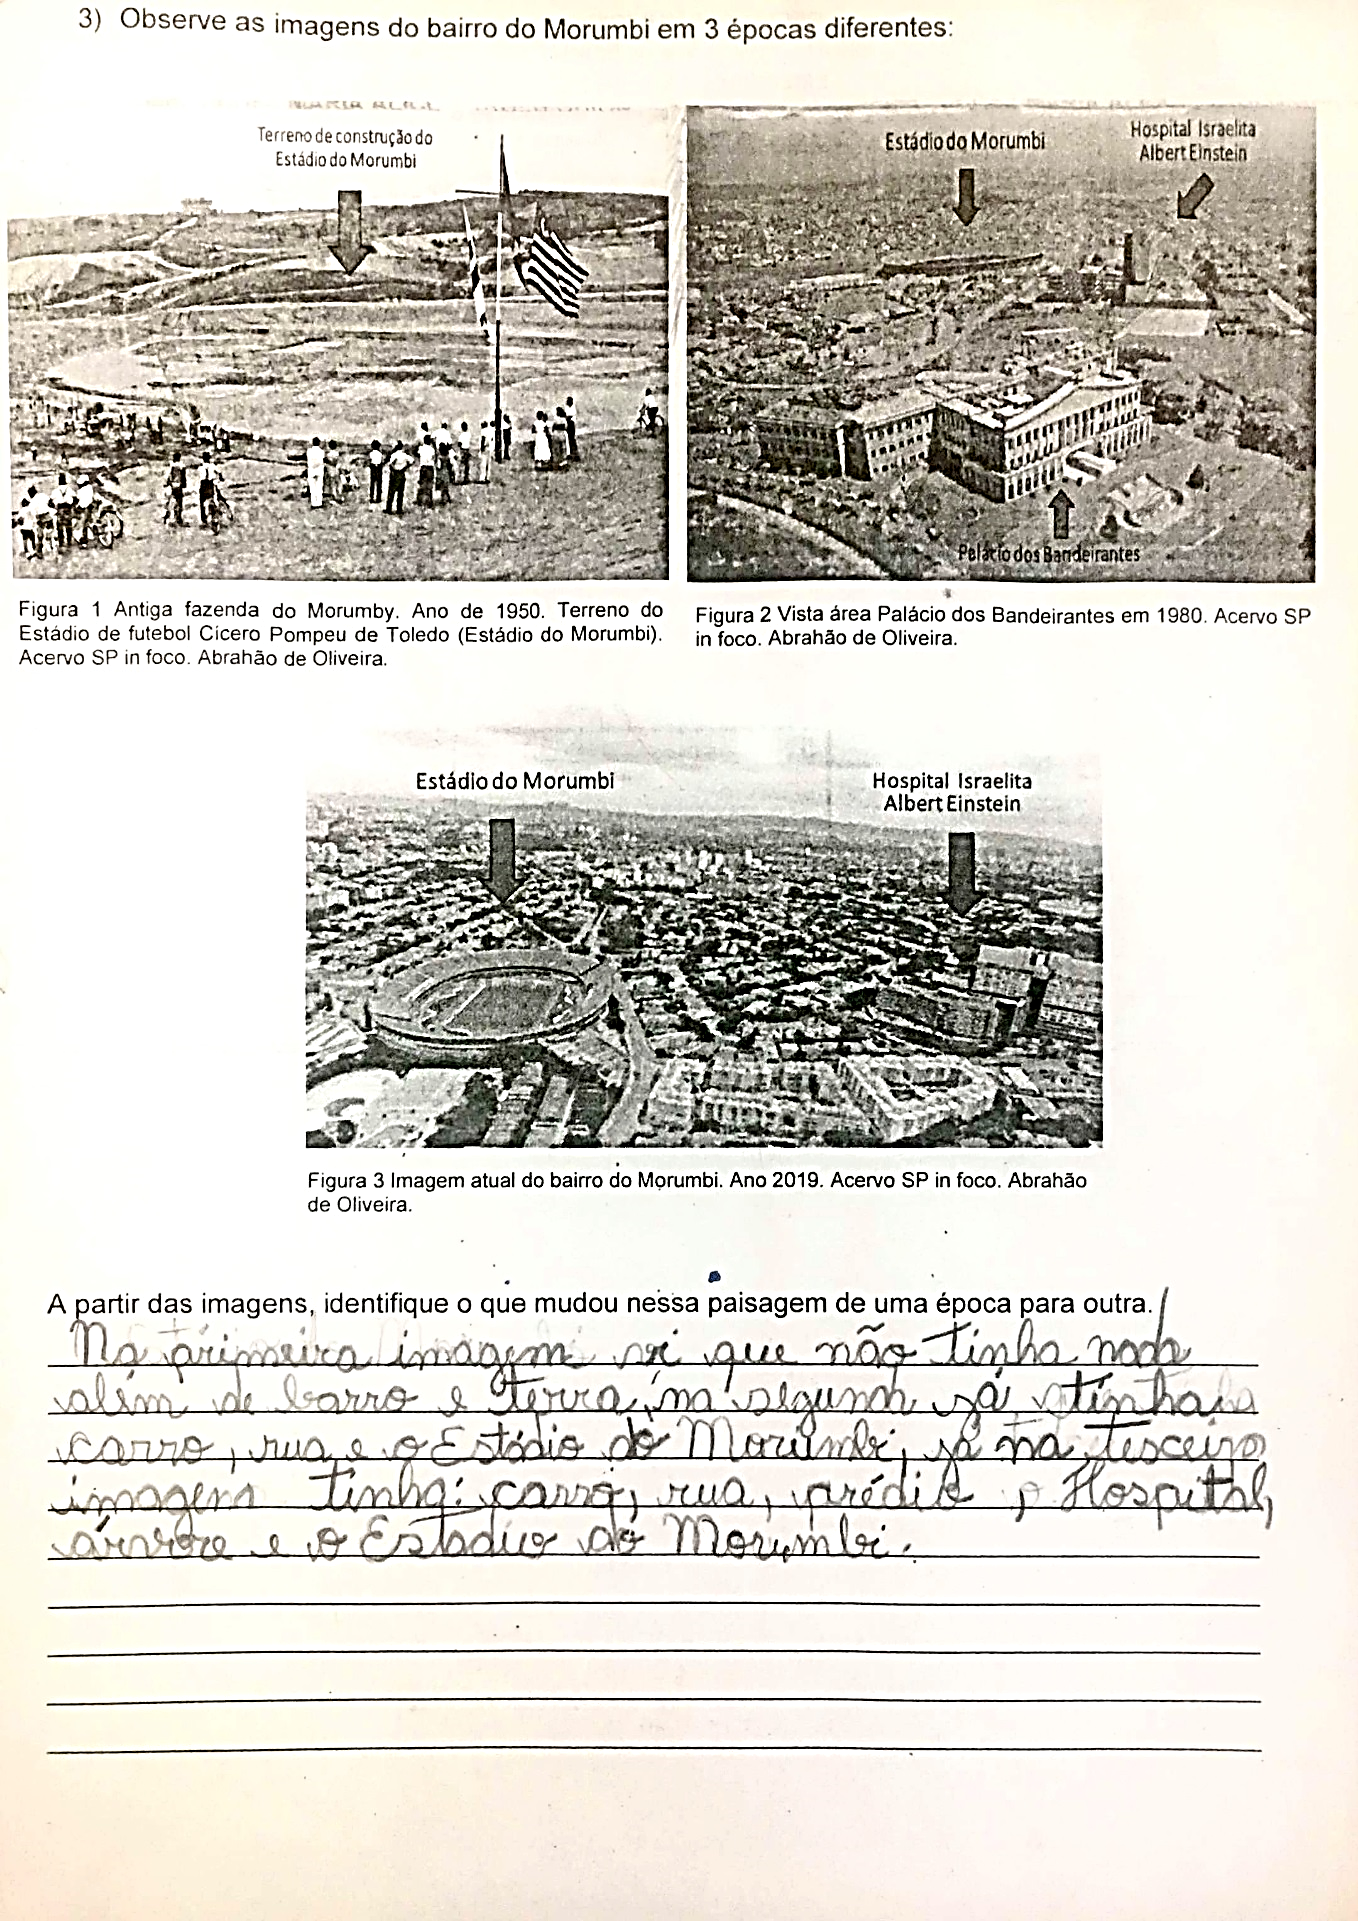 3) Observe as imagens do bairro do Morumbi em 3 épocas diferentes:
Terreno de construção do
Estádio do Morumbi
Estádio do Morumbi
Hospital Israelita
Albert Einstein
Palácio dos Bandeirantes
Figura 1 Antiga fazenda do Morumby. Ano de 1950. Terreno do
Estádio de futebol Cicero Pompeu de Toledo (Estádio do Morumbi).
Acervo SP in foco. Abrahão de Oliveira.
Figura 2 Vista área Palácio dos Bandeirantes em 1980. Acervo SP
in foco. Abrahão de Oliveira.
Estádio do Morumbi
Hospital Israelita
Albert Einstein
Figura 3 Imagem atual do bairro do Morumbi. Ano 2019. Acervo SP in foco. Abrahão
de Oliveira.
A partir das imagens, identifique o que mudou nessa paisagem de uma época para outra.
Na primeira imagem vi que não tinha nada
além de barro e terra, na segunda já tinha:
carro, rua e o Estádio do Morumbi, já na terceira
imagem tinha: carro, rua, prédio, Hospital,
árvore e o Estadio do Morumbi.